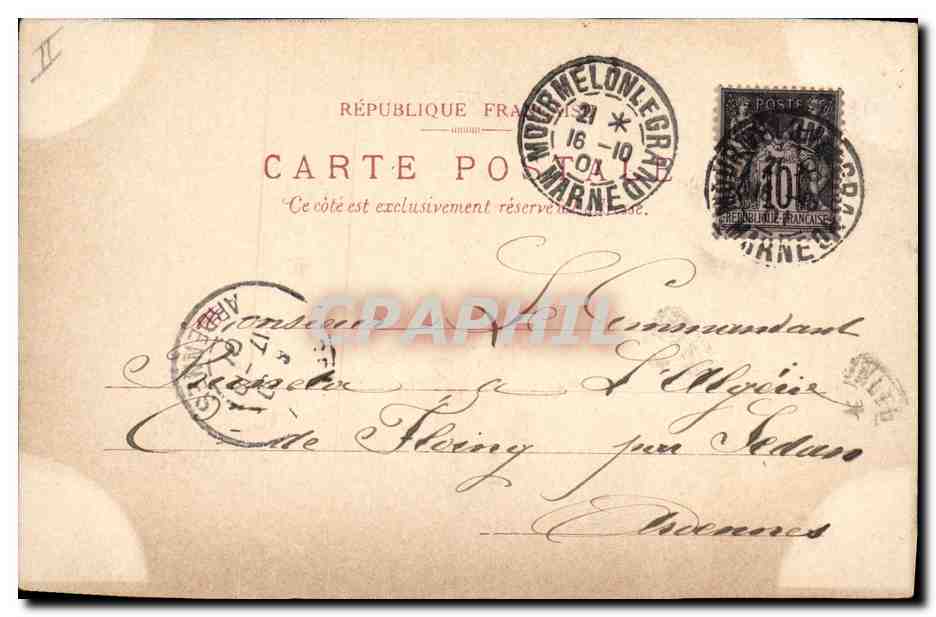 II
RÉPUBLIQUE FRANÇAISE
CARTE POSTALE
Ce côté est exclusivement réservé à l'adresse.
MOURMELON-LE-GRAND
21 *
16 -10
01
MARNE
POSTE
10
RÉPUBLIQUE FRANÇAISE
MOURMELON-LE-GRAND
MARNE
CPAPHIL
SEDAN
17
ARDENNES
Monsieur Le Commandant
à L'Algérie
de Floing par Sedan
Ardennes